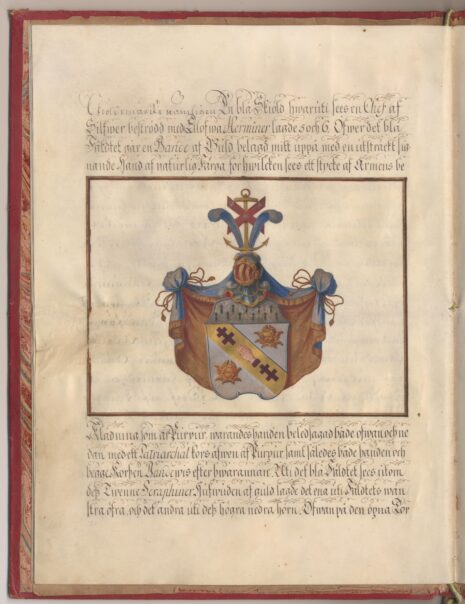 En blå Skiöld hwaruti sees en Chef af
Silfwer beströdd med Elofwa Herminer lagde 5 och 6. Öfwer det blå
Fältdet går en Barrée af Guld belagd mitt uppå med en utsträckt sig
nande Hand af naturlig Färga, för hwilcken sees ett stycke af Armens be
klädning som af Purpur, warandes handen beledsagad både ofwan och ne
dan med ett Patriarchal kors äfwen af Purpur samt således både handen och
begge Korßen Bandewis efter hwarannan. Uti det blå Fältdet sees utom
deß Twenne Seraphiner Hufwuden af guld lagde det ena uti Fältdets wän
stra öfra, och det andra uti deß högra nedra hörn. Ofwan på den öpna Tor